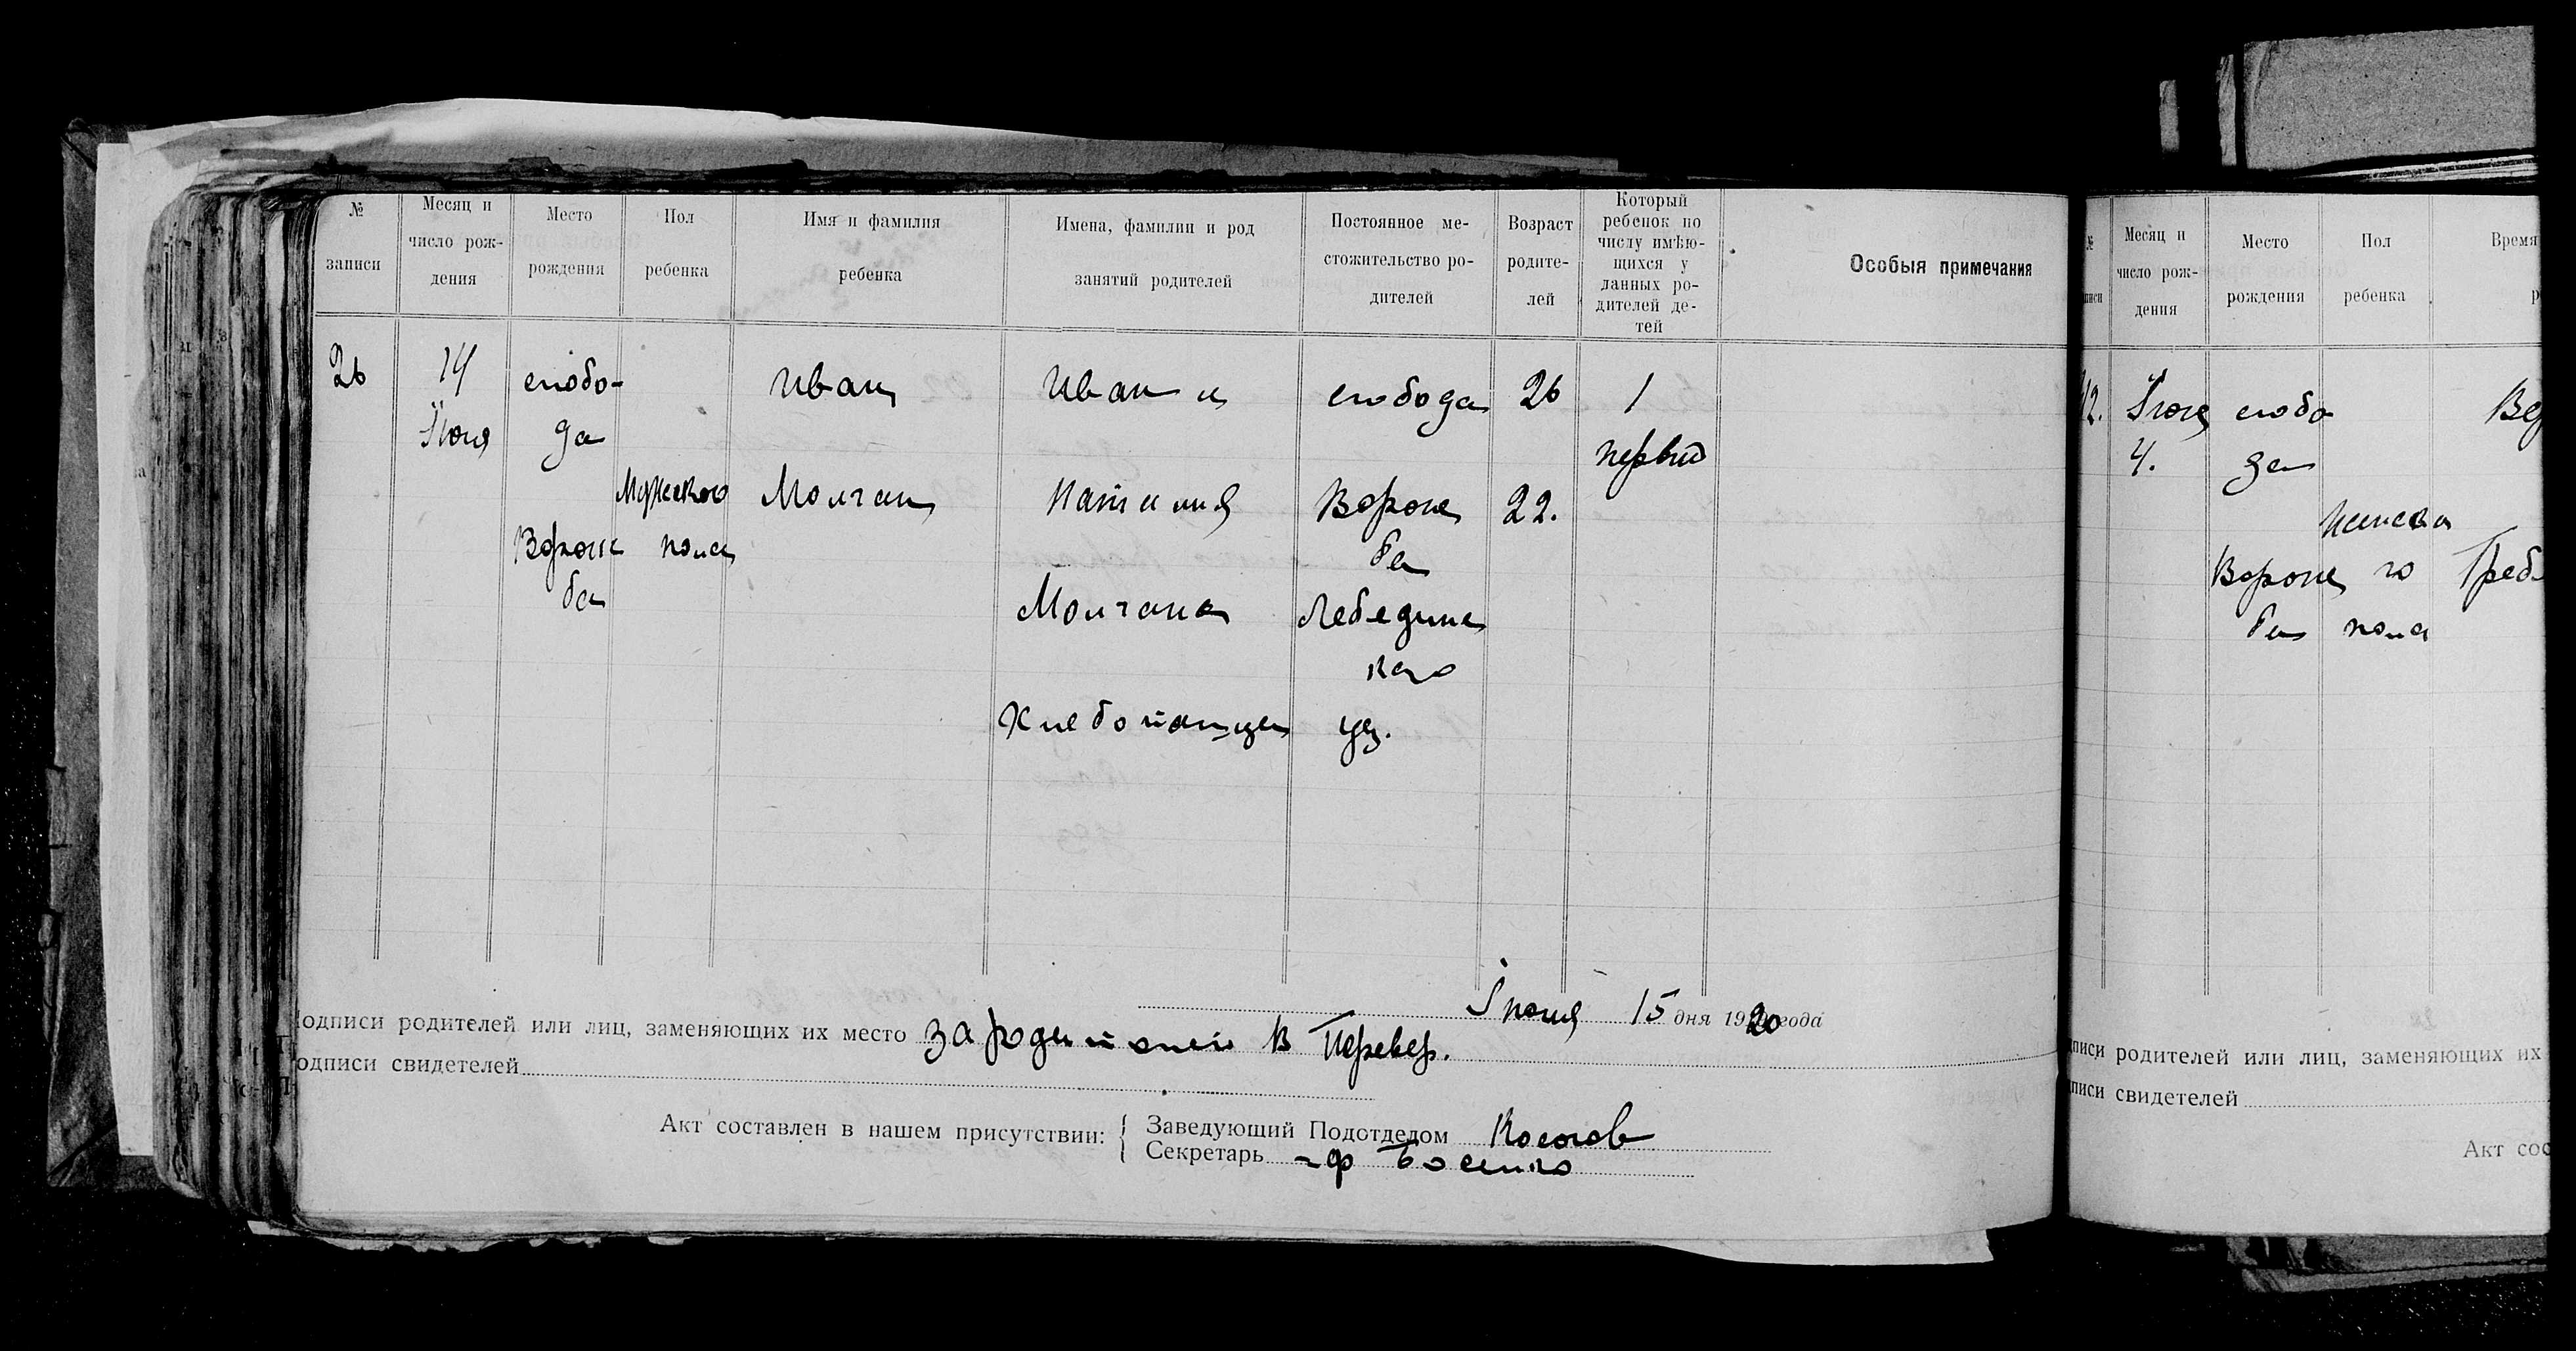 №
записи
Месяц и
число рож-
дения
Место
рождения
Пол
ребенка
Имя и фамилия
ребенка
Имена, фамилии и род
занятий родителей
Постоянное ме-
стожительство ро-
дителей
Возраст
родите-
лей
Который
ребенок по
числу имѣю-
щихся у
данных ро-
дителей де-
тей
Особыя примечания
26
14
Iюня
слобо-
да
Ворож
ба
Мужского
пола
Иван
Молчан
Иван и
Наталия
Молчана
Хлебопашцы
слобода
Вороже
ба
Лебединс
каго
уез.
26
22.
1
первый
Iюня 15 дня 1920 года
Подписи родителей или лиц, заменяющих их место за родителей В Перевер.
Подписи свидетелей
Акт составлен в нашем присутствии:
Заведующий Подотделом
Секретарь
№
писи
Месяц и
число рож-
дения
Место
рождения
Пол
ребенка
Время
12.
Iюня
4.
слобо
да
Вороже
ба
женска
го
пола
Вер
Греб
писи родителей или лиц, заменяющих их
писи свидетелей
Акт сос